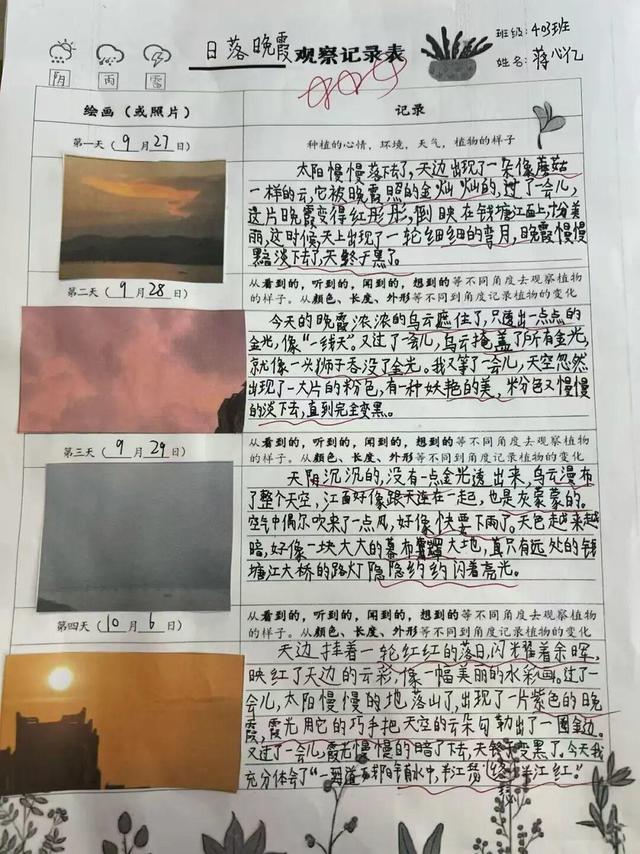 班级：403班
日落晚霞观察记录表
姓名：蒋心忆
阴 雨 雷
绘画（或照片） 记录
第一天（9月27日） 种植的心情，环境，天气，植物的样子
太阳慢慢落下去了，天边出现了一朵像蘑菇
一样的云，它被晚霞照的金灿灿的，过了一会儿，
这片晚霞变得红彤彤，倒映在钱塘江面上，十分美
丽，这时候，天上出现了一轮细细的弯月，晚霞慢慢
黯淡下去了，天终于黑了。
第二天（9月28日） 从看到的，听到的，闻到的，想到的等不同角度去观察植物
的样子。从颜色、长度、外形等不同到角度记录植物的变化
今天的晚霞浓浓的乌云遮住了，只透出一点点的
金光，像“一线天”。又过了一会儿，乌云掩盖了所有金光，
就像一头狮子吞没了金光。我又等了一会儿，天空忽然
出现了一大片的粉色，有一种妖艳的美，粉色又慢慢
的淡下去，直到完全变黑。
第三天（9月29日） 从看到的，听到的，闻到的，想到的等不同角度去观察植物
的样子。从颜色、长度、外形等不同到角度记录植物的变化
天阴沉沉的，没有一点金光透出来，乌云漫布
了整个天空，江面好像跟天连在一起，也是灰蒙蒙的。
空气中偶尔吹来了一点风，好像快要下雨了。天色越来越
暗，好像一块大大的幕布笼罩大地，真只有远处的钱
塘江大桥的路灯隐隐约约闪着亮光。
第四天（10月6日） 从看到的，听到的，闻到的，想到的等不同角度去观察植物
的样子。从颜色、长度、外形等不同到角度记录植物的变化
天边挂着一轮红红的落日，闪着余晖，
映红了天边的云彩，像一幅美丽的水彩画。过了一
会儿，太阳慢慢的地落山了，出现了一片紫色的晚
霞，霞光用它的巧手把天空的云朵勾勒出了一圈金边。
又过了一会儿，霞光慢慢的暗了下去，天终于变黑了。今天我
充分体会了“一道残阳铺水中，半江瑟瑟半江红。”